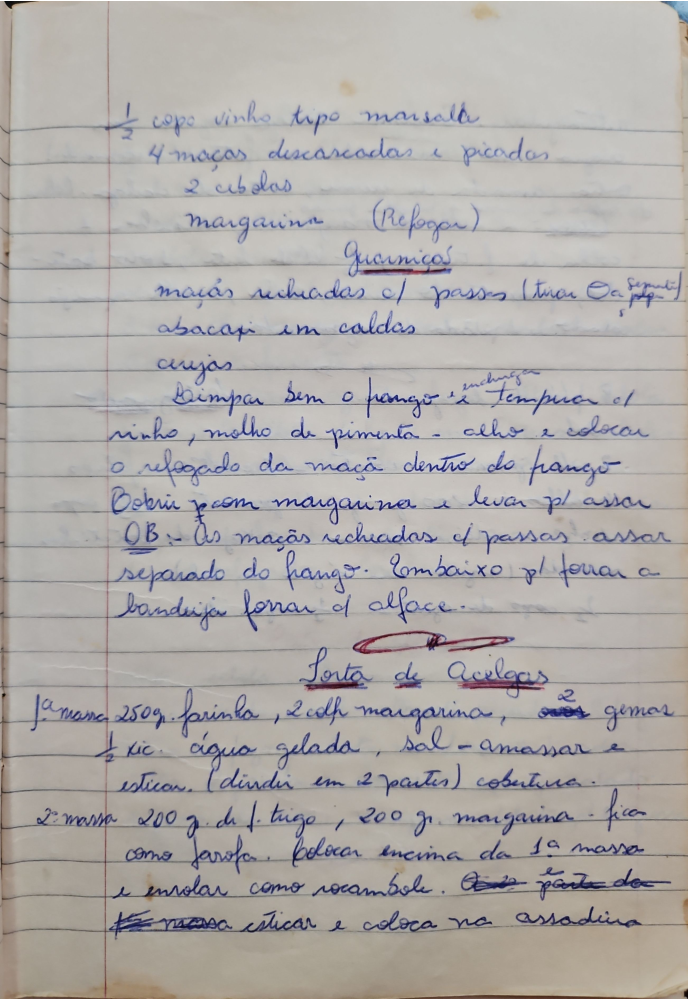 ½ copo vinho tipo marsalla
4 maças descascadas e picadas
2 cebolas
margarina (Refogar)
Guarniçoś
maçãs recheadas c/ passas (tirar a semente
abacaxi em caldas
cerejas
Limpar bem o frango e enchugar temperar c/
vinho, molho de pimenta - alho e colocar
o refogado da maçã dentro do frango
Cobrir com margarina e levar p/ assar
OB:- As maçãs recheadas c/ passas assar
separado do frango. Embaixo p/ forrar a
bandeija forrar c/ alface.
Torta de Acelgas
1ª massa 250 g. farinha, 2 colh margarina, 2 gemas
½ xic. água gelada, sal - amassar e
esticar. (dividir em 2 partes) cobertura.
2ª massa 200 g. de f. trigo, 200 gr. margarina - fica
como farofa. Colocar encima da 1ª massa
e enrolar como rocambole. e
esticar e coloca na assadeira